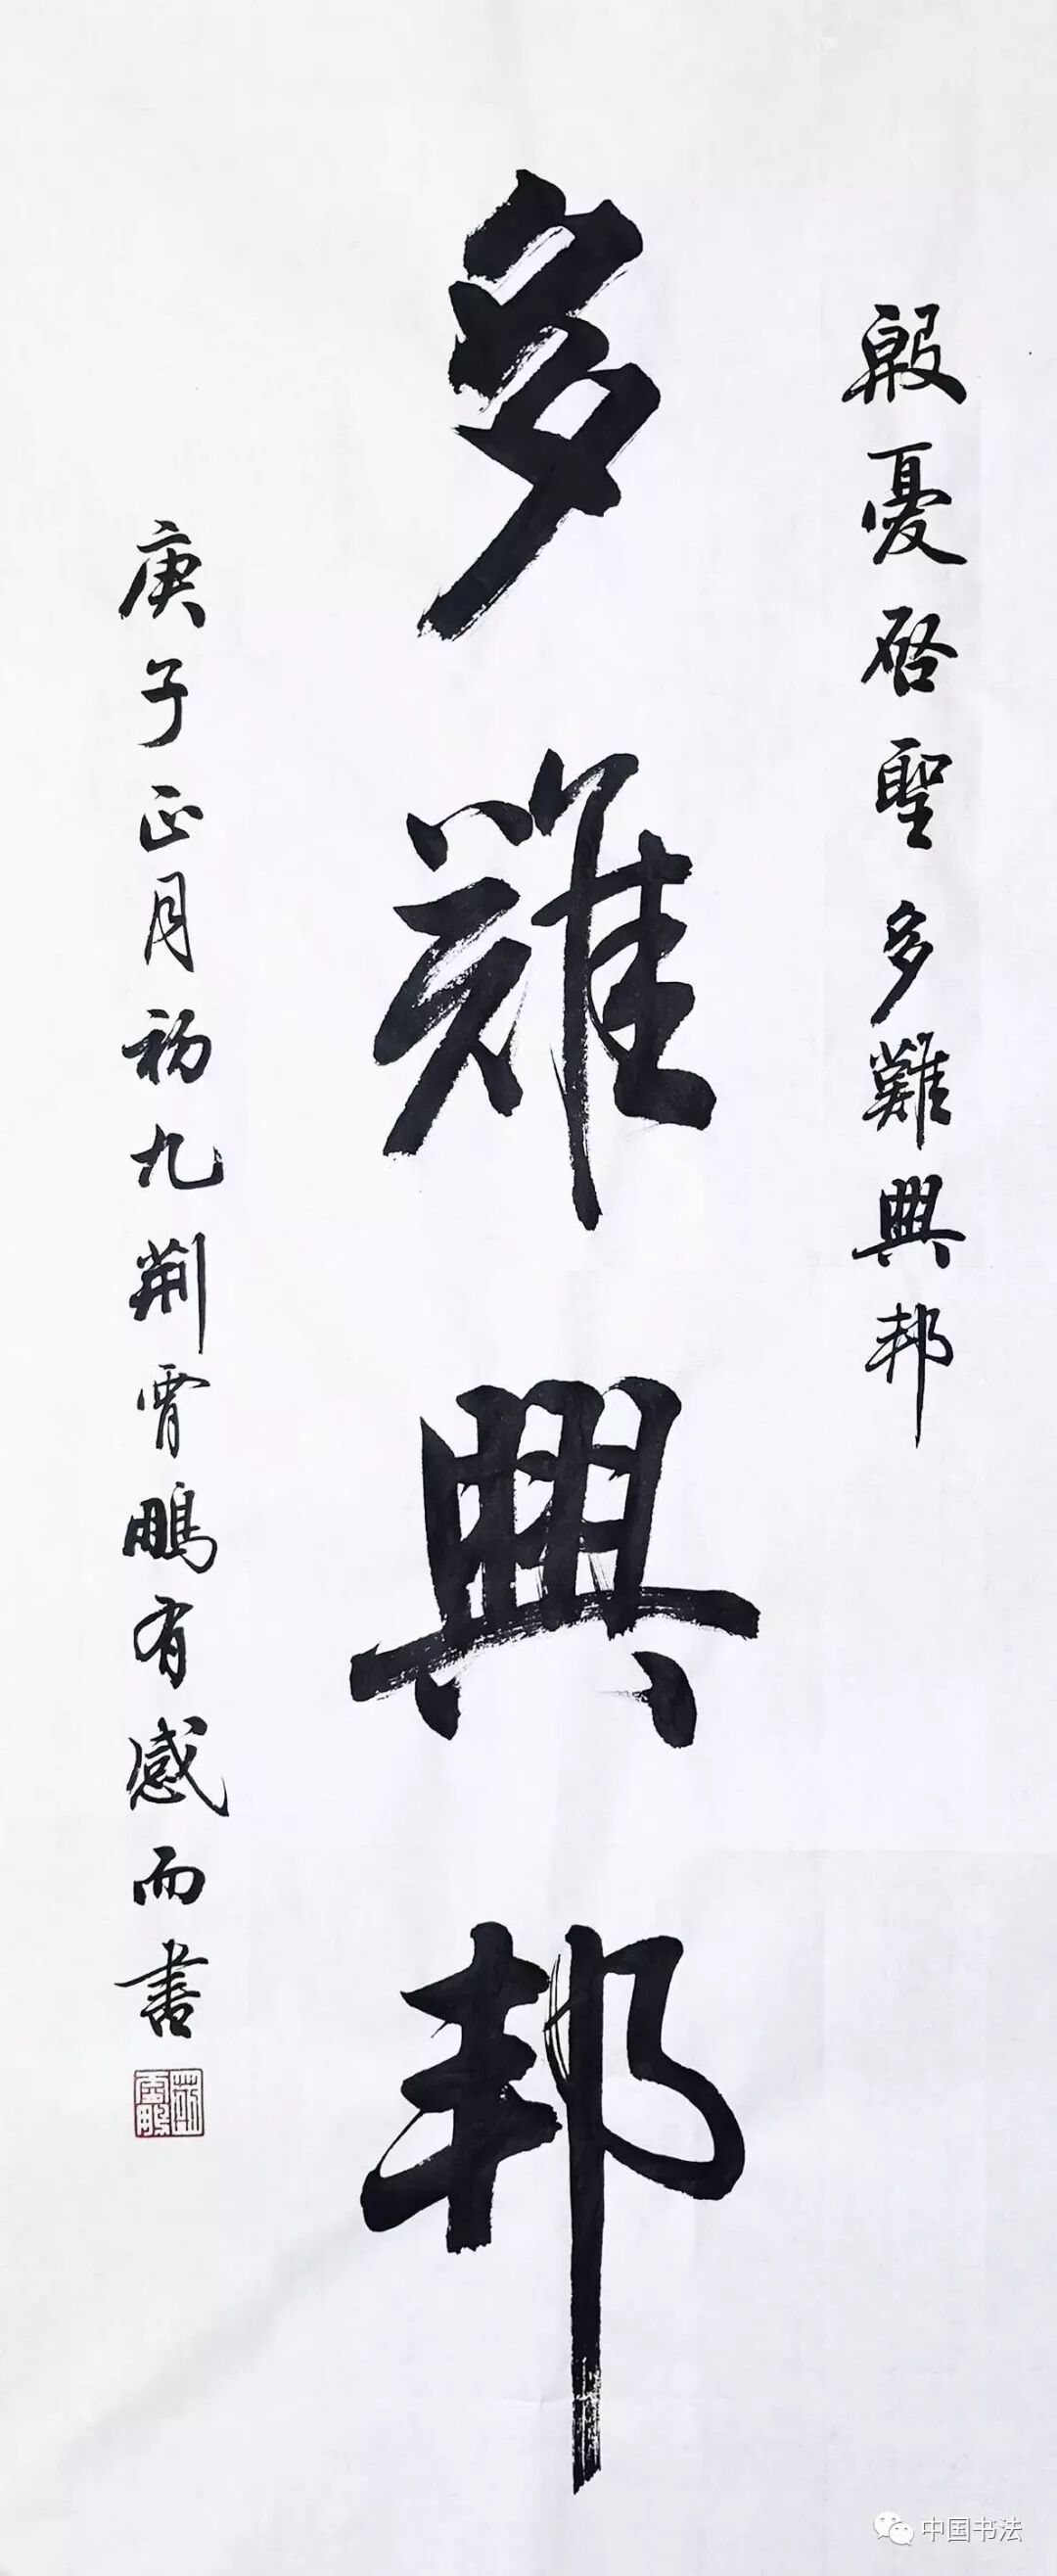 殷憂啓聖多難興邦
多難興邦
庚子正月初九荆霄鵬有感而書
荆霄鵬
中国书法